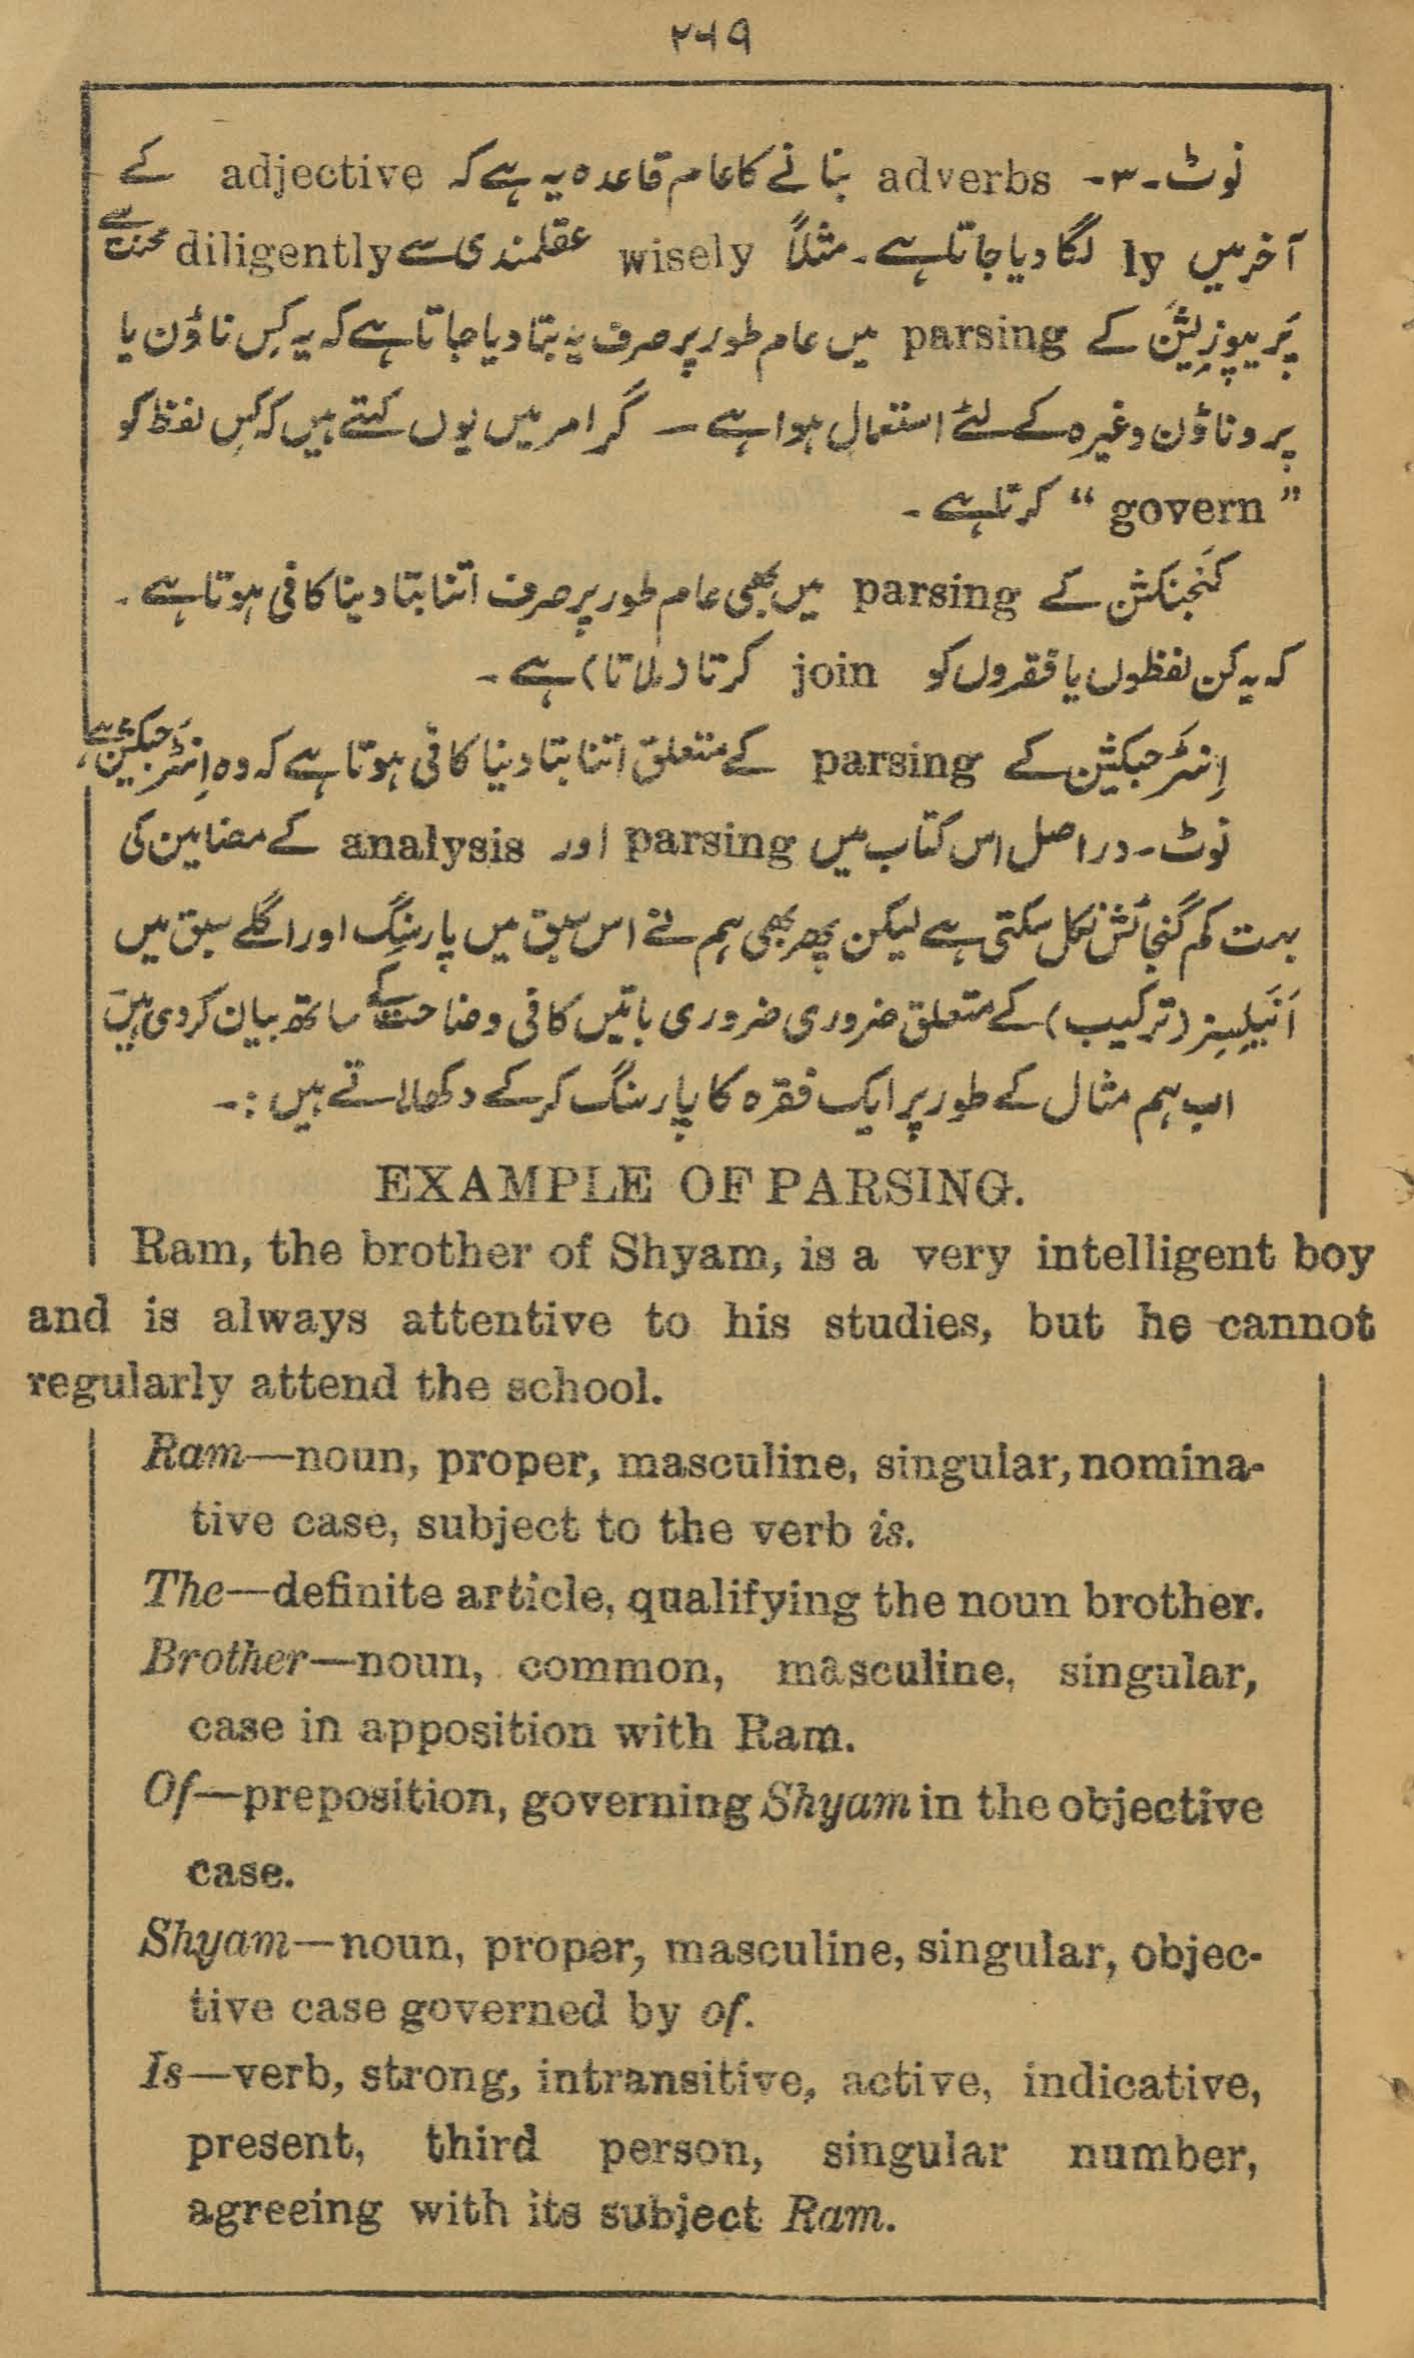 ۲۶۹
نوٹ۔۳۔ adverbs بنانے کا عام قاعدہ یہ ہے کہ adjective کے
آخر میں ly لگا دیا جاتا ہے۔ مثلاً wisely عقلمندی سے diligently محنت سے
پَریپوزِیشَن کے parsing میں عام طور پر صرف یہ بتا دیا جاتا ہے کہ یہ کِس ناؤن یا
پروناؤن وغیرہ کے لئے استعمال ہوا ہے ۔ گرامر میں یوں کہتے ہیں کہ کِس لفظ کو
“ govern ” کرتا ہے ۔
کنَجنکشن کے parsing میں بھی عام طور پر صرف اتنا بتا دینا کافی ہوتا ہے ۔
کہ یہ کن لفظوں یا فقروں کو join کرتا (ملاتا) ہے ۔
اِنٹَرجیکشن کے parsing کے متعلق اتنا بتا دینا کافی ہوتا ہے کہ وہ اِنٹَرجیکشن ہے،
نوٹ۔ دراصل اس کتاب میں parsing اور analysis کے مضامین کی
بہت کم گنجائش نکل سکتی ہے لیکن پھر بھی ہم نے اس سبق میں پارسنگ اور اگلے سبق میں
اَنَیلِیسِز (ترکیب) کے متعلق ضروری ضروری باتیں کافی وضاحت کے ساتھ بیان کر دی ہیں
اب ہم مثال کے طور پر ایک فقرہ کا پارسنگ کر کے دکھلاتے ہیں :۔
EXAMPLE OF PARSING.
Ram, the brother of Shyam, is a very intelligent boy
and is always attentive to his studies, but he cannot
regularly attend the school.
Ram—noun, proper, masculine, singular, nomina-
tive case, subject to the verb is.
The—definite article, qualifying the noun brother.
Brother—noun, common, masculine, singular,
case in apposition with Ram.
Of—preposition, governing Shyam in the objective
case.
Shyam—noun, proper, masculine, singular, objec-
tive case governed by of.
Is—verb, strong, intransitive, active, indicative,
present, third person, singular number,
agreeing with its subject Ram.